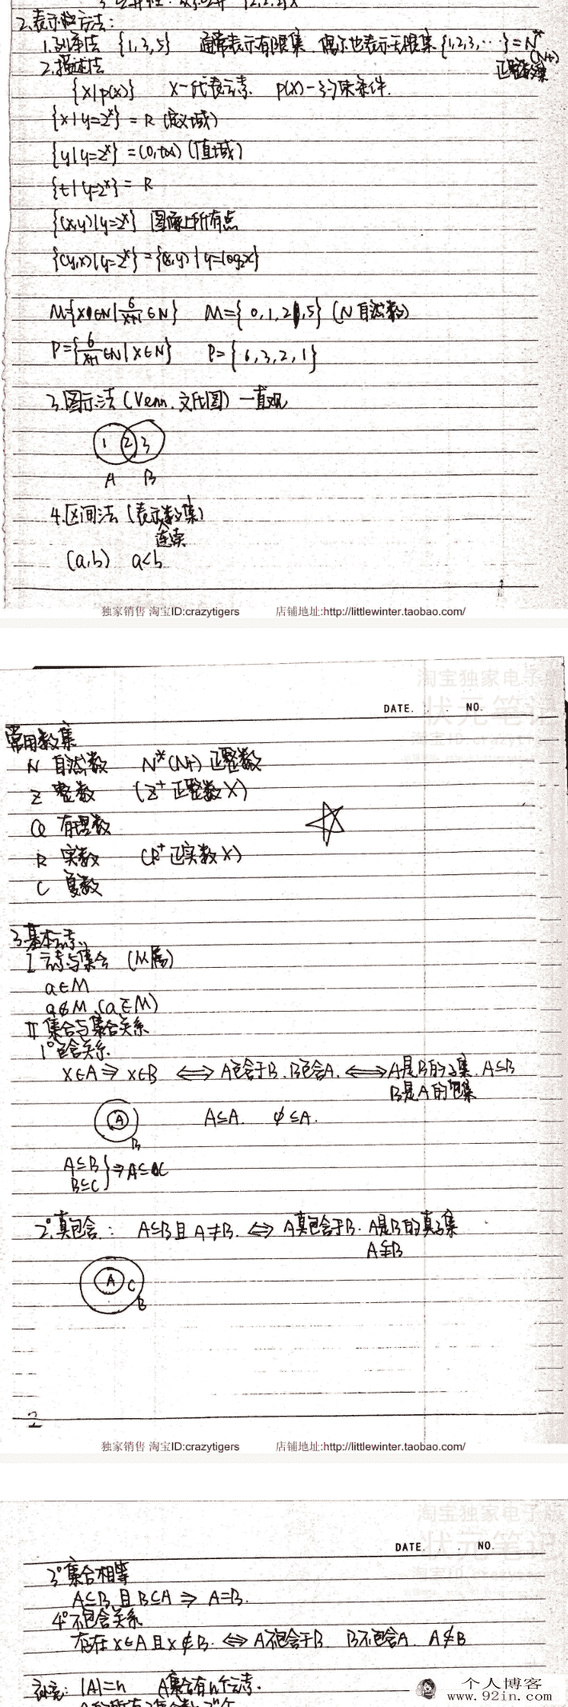 2.表示方法:
1.列举法 {1,3,5} 通常表示有限集 偶尔也表示无限集{1,2,3,…}=N*
(N+)
正整数集
2.描述法
{x|p(x)} x-代表元素. p(x)-约束条件.
{x|y=2ˣ}=R (定义域)
{y|y=2ˣ}=(0,+∞) (值域)
{t|y=2ˣ}=R
{(x,y)|y=2ˣ} 图像上所有点
{(y,x)|y=2ˣ}={(x,y)|y=log₂x}
M={x∈N|6/(x+1)∈N} M={0,1,2,5} (N自然数)
P={6/(x+1)∈N|x∈N} P={6,3,2,1}
3.图示法(Venn.文氏图)一直观
1 2 3
A B
4.区间法(表示数集)
连续
(a,b) a<b
1
独家销售 淘宝ID:crazytigers 店铺地址:http://littlewinter.taobao.com/
淘宝独家电子版
状元笔记
DATE. . NO.
常用数集
N 自然数 N*(N+)正整数
Z 整数 (Z⁺正整数X)
Q 有理数
R 实数 (R⁺正实数X)
C 复数
3.基本关系.
I 元素与集合 (从属)
a∈M
a∉M (a∈̄M)
II 集合与集合关系
1°包含关系.
x∈A⇒x∈B ⟺A包含于B.B包含A.⟺A是B的子集.A⊆B
B是A的包集
A
B
A⊆A. ∅⊆A.
A⊆B
B⊆C}⇒A⊆C
2°真包含: A⊆B且A≠B.⟺A真包含于B.A是B的真子集
A⫋B
A C
B
2
独家销售 淘宝ID:crazytigers 店铺地址:http://littlewinter.taobao.com/
淘宝独家电子版
状元笔记
DATE . NO.
3°集合相等
A⊆B且B⊆A⇒A=B.
4°不包含关系
存在x∈A且x∉B.⟺A不包含于B B不包含A. A⊈B
|A|=n A集合有n个元素.
个人博客
www.92in.com